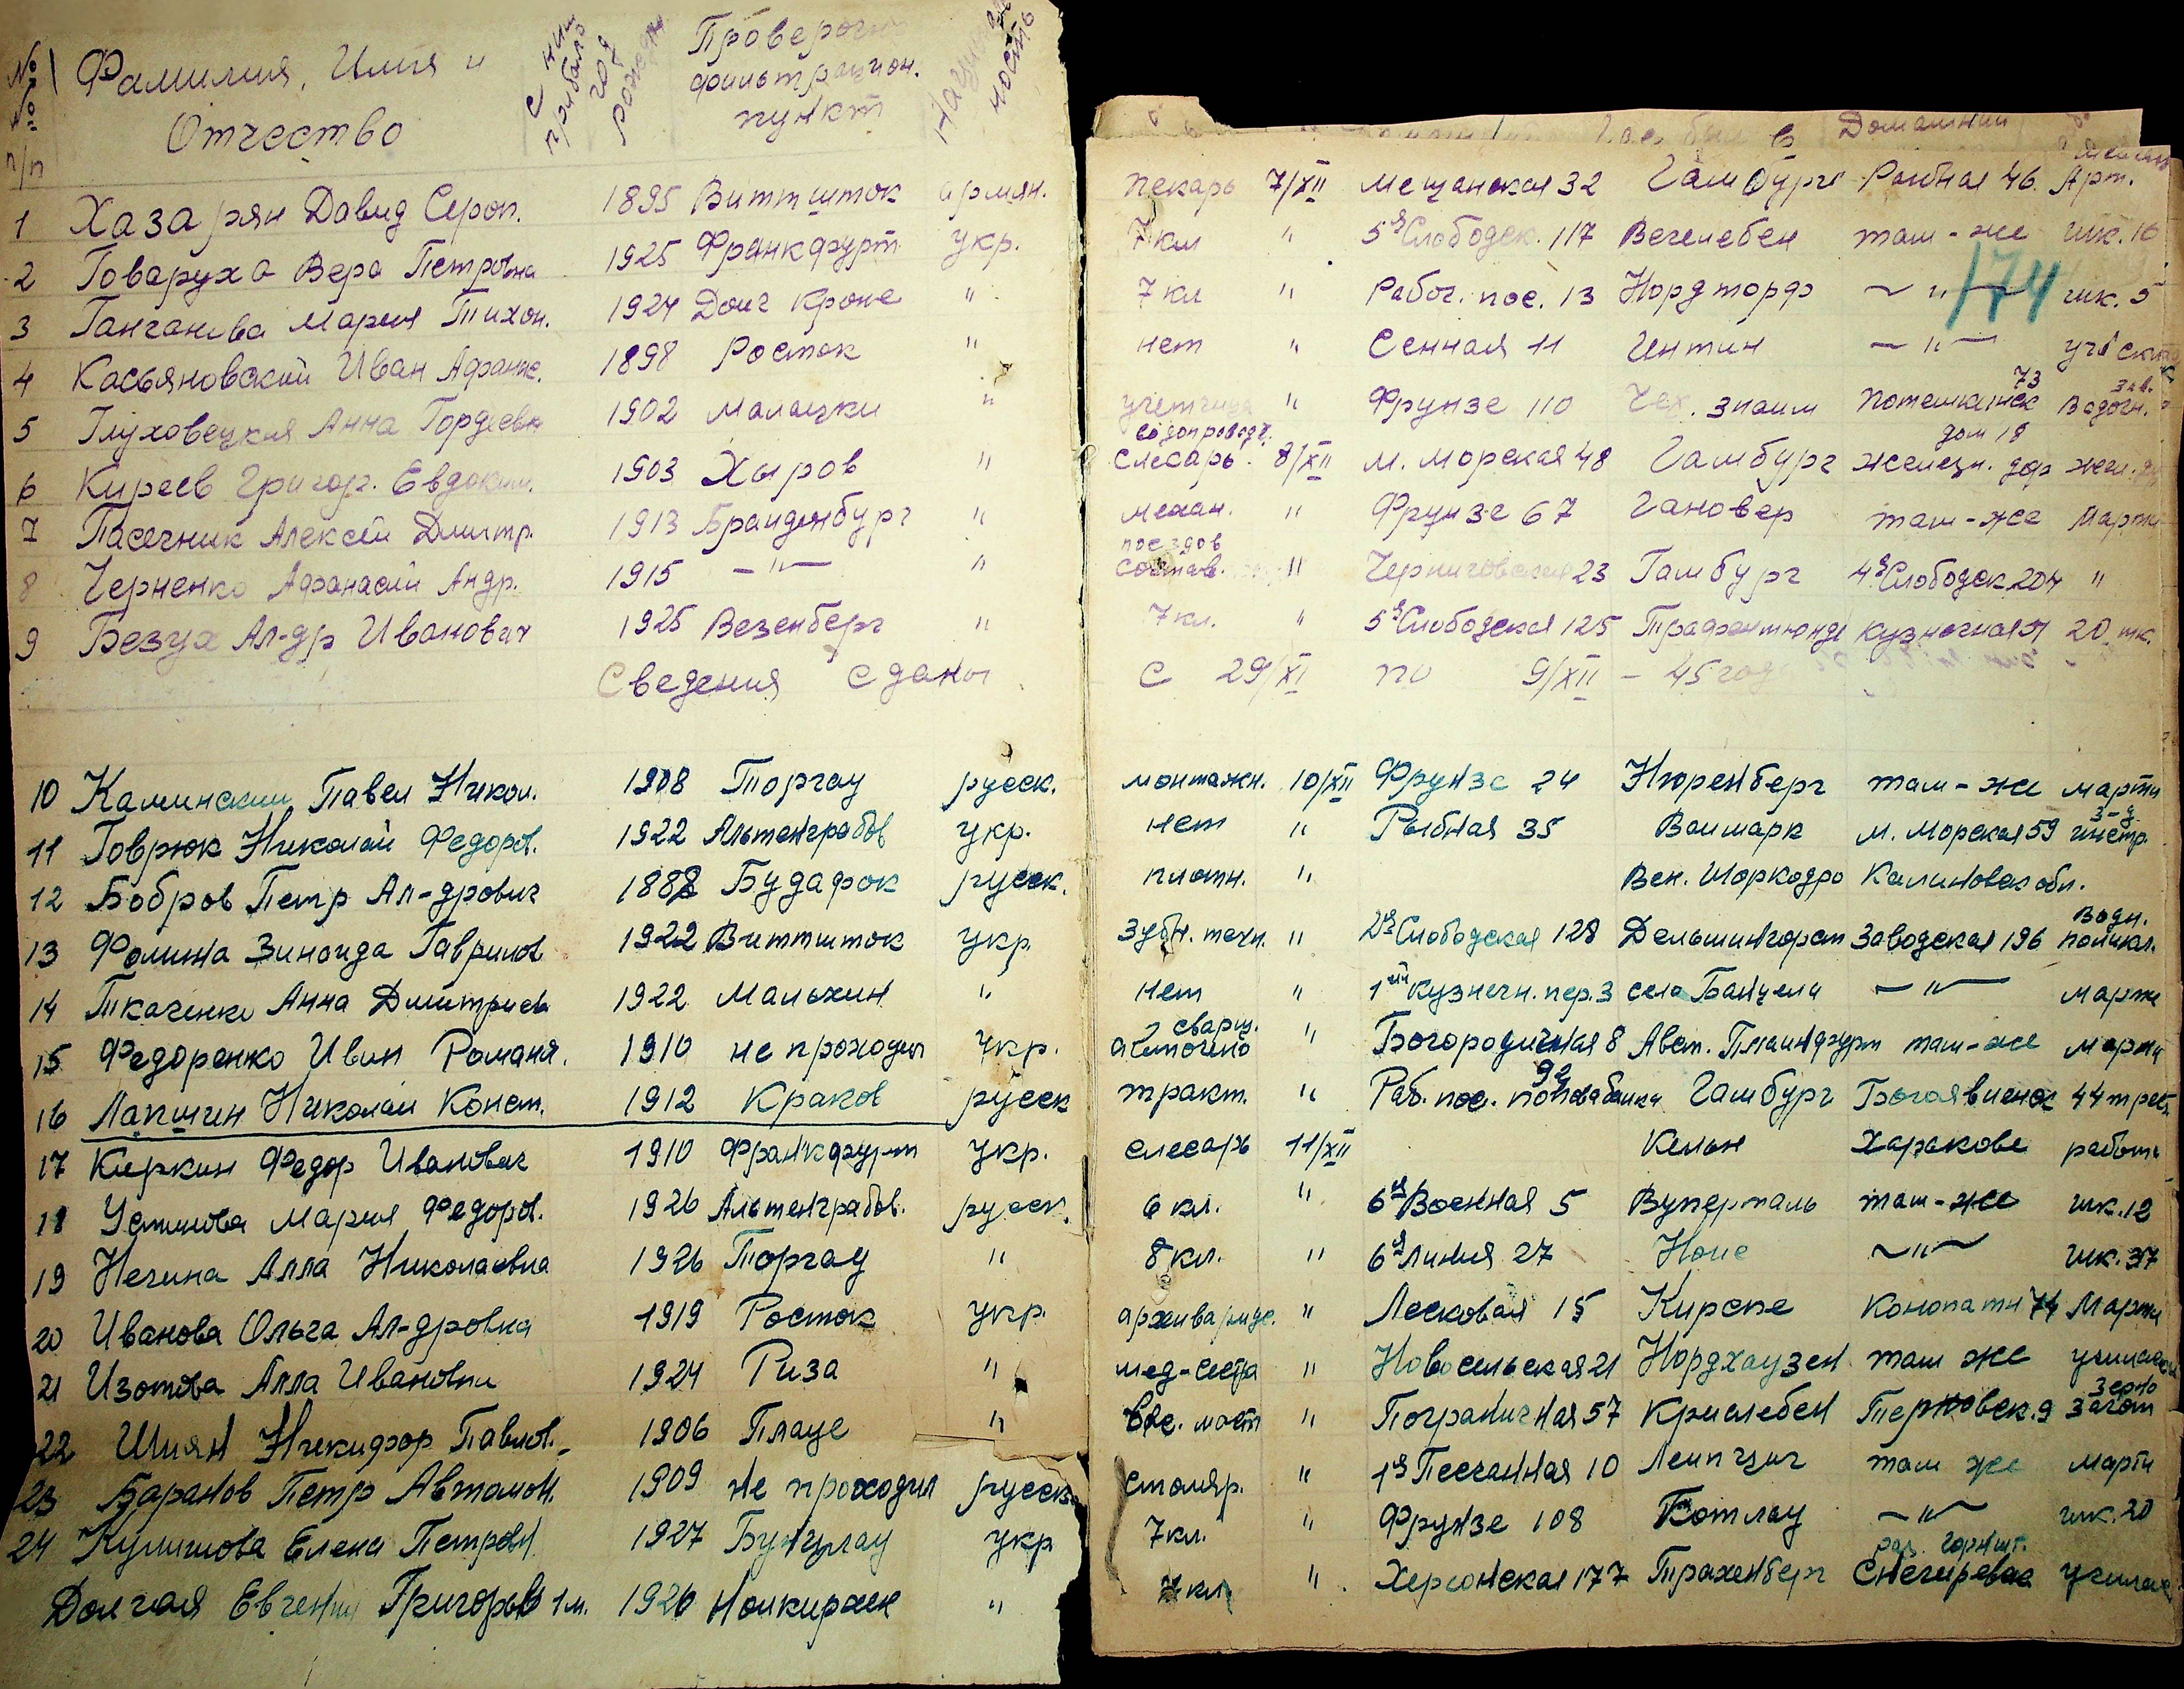 №№ п/п Фамилия, Имя и Отчество С ним прибыло год рожден Проверочн фильтрацион. пункт ность
Домашний
1 Хазарян Давид Сероп. 1895 Виттшток армян. пекарь 7/XII Мещанская 32 Гамбург Рыбная 46. Арт.
2 Товаруха Вера Петровна 1925 Франкфурт укр. 7 кл " 5я Слободск. 117 Вегелебен там-же шк. 16
174
3 Мария Тихон. 1924 Дойч Кроне " 7 кл " Рабоч. пос. 13 Нордторф —"— шк. 5
4 Касьяновский Иван Афанас. 1898 Росток " нет " Сенная 11 —"—
5 Глуховецкая Анна Гордеевн 1902 Малацки " " Фрунзе 110 Чех. Знаим 73 зав. Водочн.
6 Киреев Григор. Евдоким. 1903 Хыров " водопроводч. слесарь 8/XII М. Морская 48 Гамбург железн. дор дом 18
7 Пасечник Алексей Дмитр. 1913 Бранденбург " механ. " Фрунзе 67 Гановер там-же Марти
8 Черненко Афанасий Андр. 1915 —"— " поездов состав. " Черниговская 23 Гамбург 4я Слободск 204 "
9 Безух Ал-др Иванович 1925 Везенберг " 7 кл. " 5я Слободская 125 20
Сведения сданы с 29/XI по 9/XII – 45 год
10 Каминский Павел Никол. 1908 Торгау русск. монтажн. 10/XII Фрунзе 24 Нюренберг там-же марти
11 Говрюк Николай Федоров. 1922 Альтенграбов укр. нет " Рыбная 35 Ваймарк М. Морская 59 з-д. инстр.
12 Бобров Петр Ал-дрович 1888 Будафок русск. плотн. " Вен. Калиновск обл.
13 Фомина Зинаида Гаврилов 1922 Виттшток укр. Зубн. техн. " 2я Слободская 128 Заводская 196 Водн. поликл.
14 Ткаченко Анна Дмитриев 1922 Мальхин " нет " 1ый Кузнечн. пер. 3 села —"— марти
15 Федоренко Иван Романа. 1910 не проходил укр. сварщ. " Богородичная 8 Авст. там-же марти
16 Лапшин Николай Конст. 1912 Краков русск тракт. " Раб. пос. 92 Гамбург Богоявленск
17 Киркин Федор Иванович 1910 Франкфурт укр. слесарь 11/XII Кельн Харькове
18 Устинова Мария Федоров. 1926 Альтенграбов. русск. 6 кл. " 6я Военная 5 Вуперталь там-же шк. 12
19 Нечина Алла Николаевна 1926 Торгау " 8 кл. " 6я Линия 27 —"— шк. 37
20 Иванова Ольга Ал-дровна 1919 Росток укр. архивариус. " Лесковая 15 Кирспе 74 Марти
21 Изотова Алла Ивановна 1924 Риза " мед-сестра " Новосельская 21 Нордхаузен там же
22 Шиян Никифор Павлов. 1906 Плауе " " Пограничная 57 Терновск. 9 Зерно Загот
23 Баранов Петр Автомон. 1909 не проходил русск столяр. " 1я Песчанная 10 Лейпциг там же марти
24 Елена Петровн. 1927 Бунцлау укр 7 кл. " Фрунзе 108 Котлау —"— шк. 20
Долгая Евгения Григорьев 1м. 1926 Ноикирхен " 7 кл. " Херсонская 177 Трахенберг Снегиревка